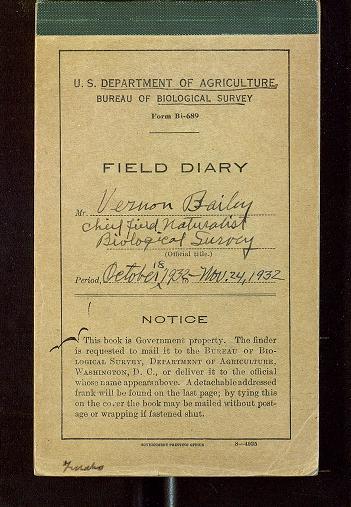 U. S. DEPARTMENT OF AGRICULTURE,
BUREAU OF BIOLOGICAL SURVEY
Form Bi-689
FIELD DIARY
Mr. Vernon Bailey
Chief Field Naturalist
Biological Survey
(Official title.)
Period, October 18, 1932 - Nov. 24, 1932
NOTICE
This book is Government property. The finder
is requested to mail it to the BUREAU OF BIO-
LOGICAL SURVEY, DEPARTMENT OF AGRICULTURE,
WASHINGTON, D. C., or deliver it to the official
whose name appears above. A detachable addressed
frank will be found on the last page; by tying this
on the cover the book may be mailed without post-
age or wrapping if fastened shut.
GOVERNMENT PRINTING OFFICE 8—4035